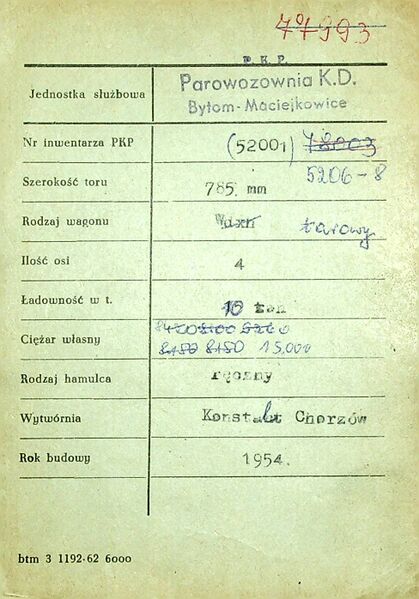 77993
P.K.P.
Jednostka służbowa Parowozownia K.D.
Bytom-Maciejkowice
Nr inwentarza PKP (52001) 78003
5206-8
Szerokość toru 785 mm
Rodzaj wagonu Wdxh tarowy
Ilość osi 4
Ładowność w t. 10 ton
8400 8100 8260
Ciężar własny 8150 8150 15.000
Rodzaj hamulca ręczny
Wytwórnia Konstalt Chorzów
Rok budowy 1954.
btm 3 1192-62 6000